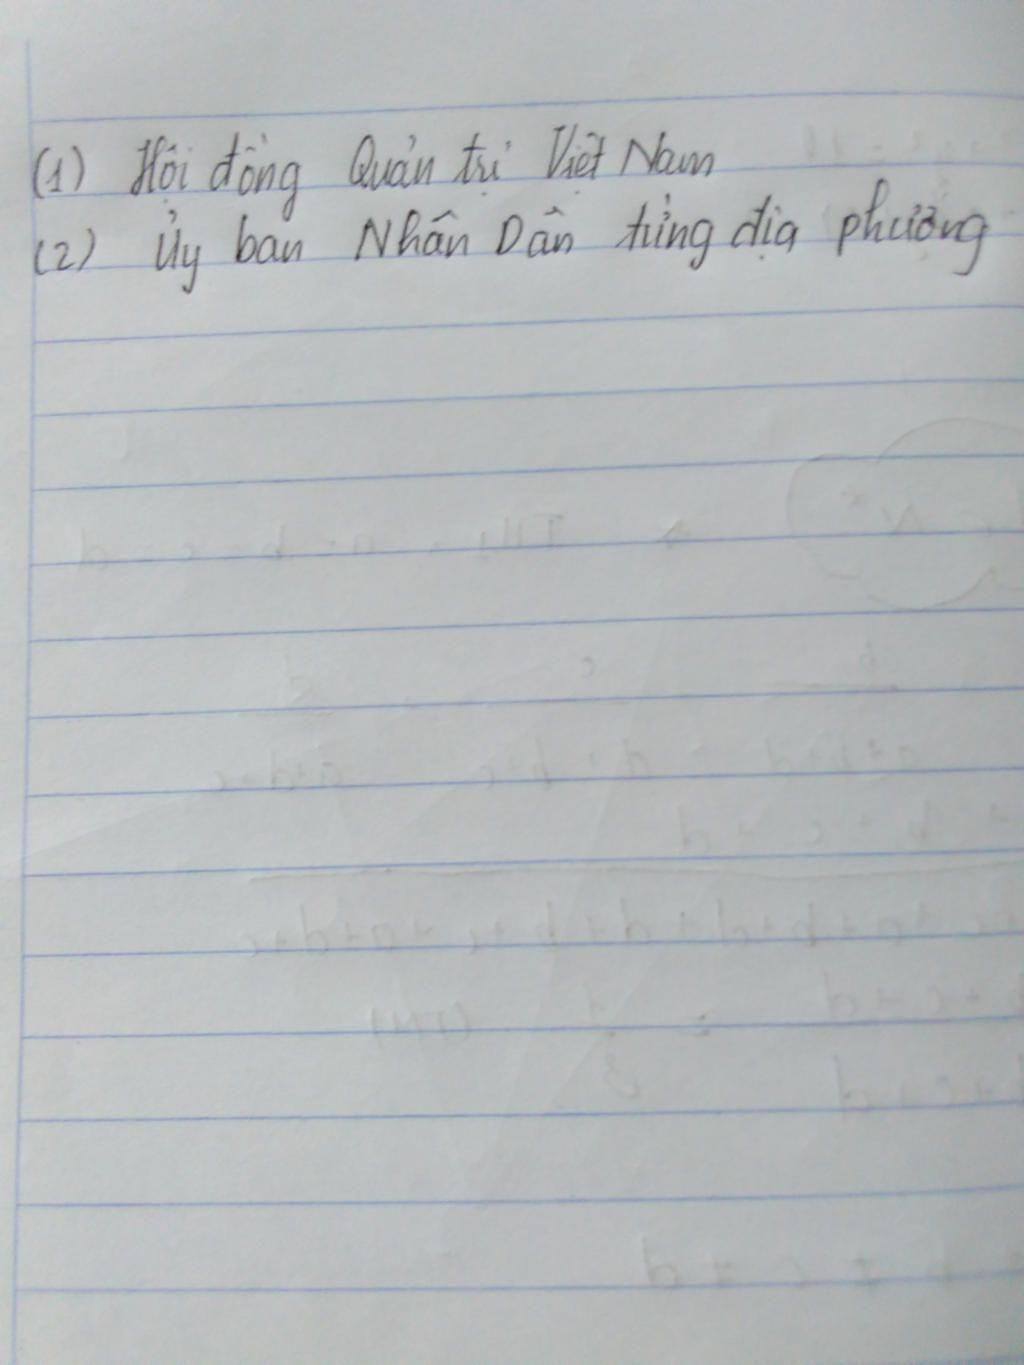 (1) Hội đồng Quản trị Việt Nam
(2) Ủy ban Nhân Dân từng địa phương